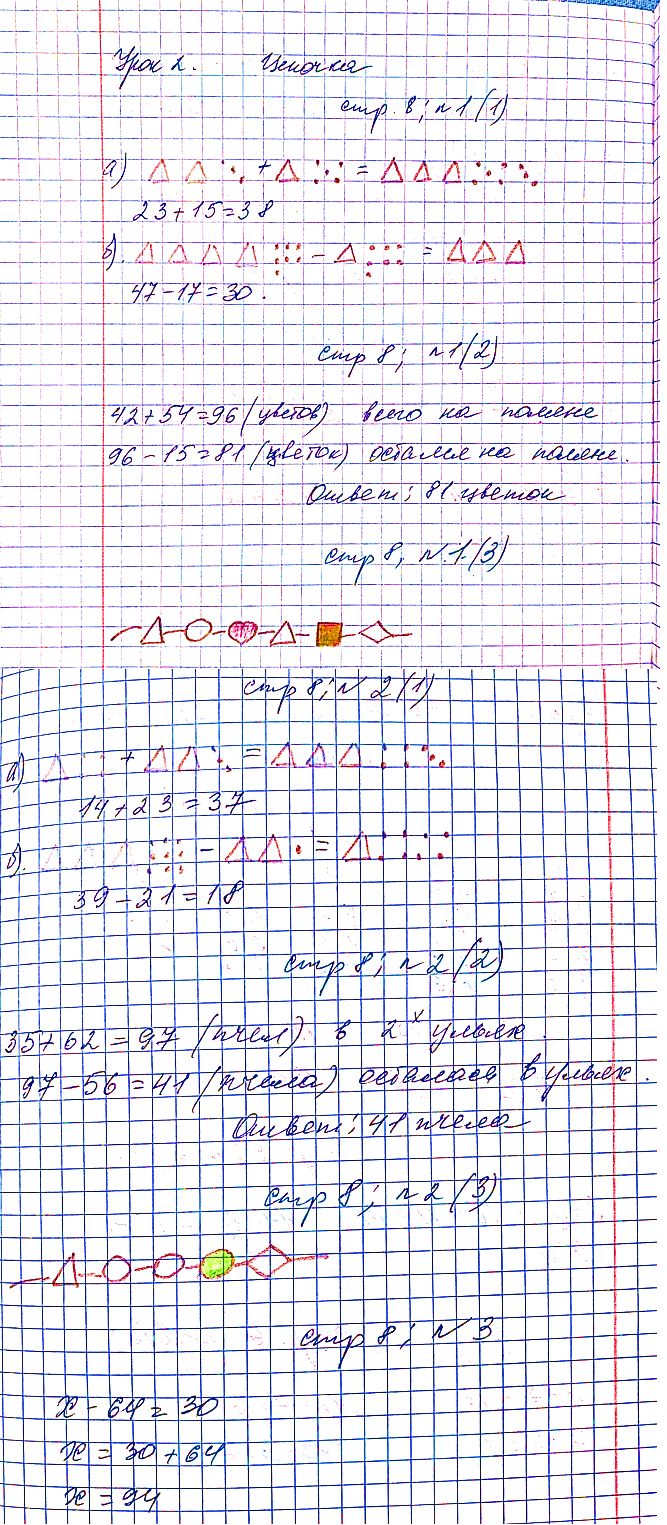 Урок 2. Цепочка
стр. 8; №1 (1)
а) + =
23+15=38
б). - =
47-17=30.
стр 8; №1(2)
42+54=96 (цветов) всего на поляне
96-15=81 (цветок) остался на поляне.
Ответ: 81 цветок
стр 8; №1 (3)
стр 8; №2(1)
а) + =
14+23=37
б). - =
39-21=18
стр 8; №2(2)
35+62=97 (пчел) в 2х ульях.
97-56=41 (пчела) осталась в ульях.
Ответ: 41 пчела
стр 8; №2 (3)
стр 8; №3
х-64=30
х=30+64
х=94